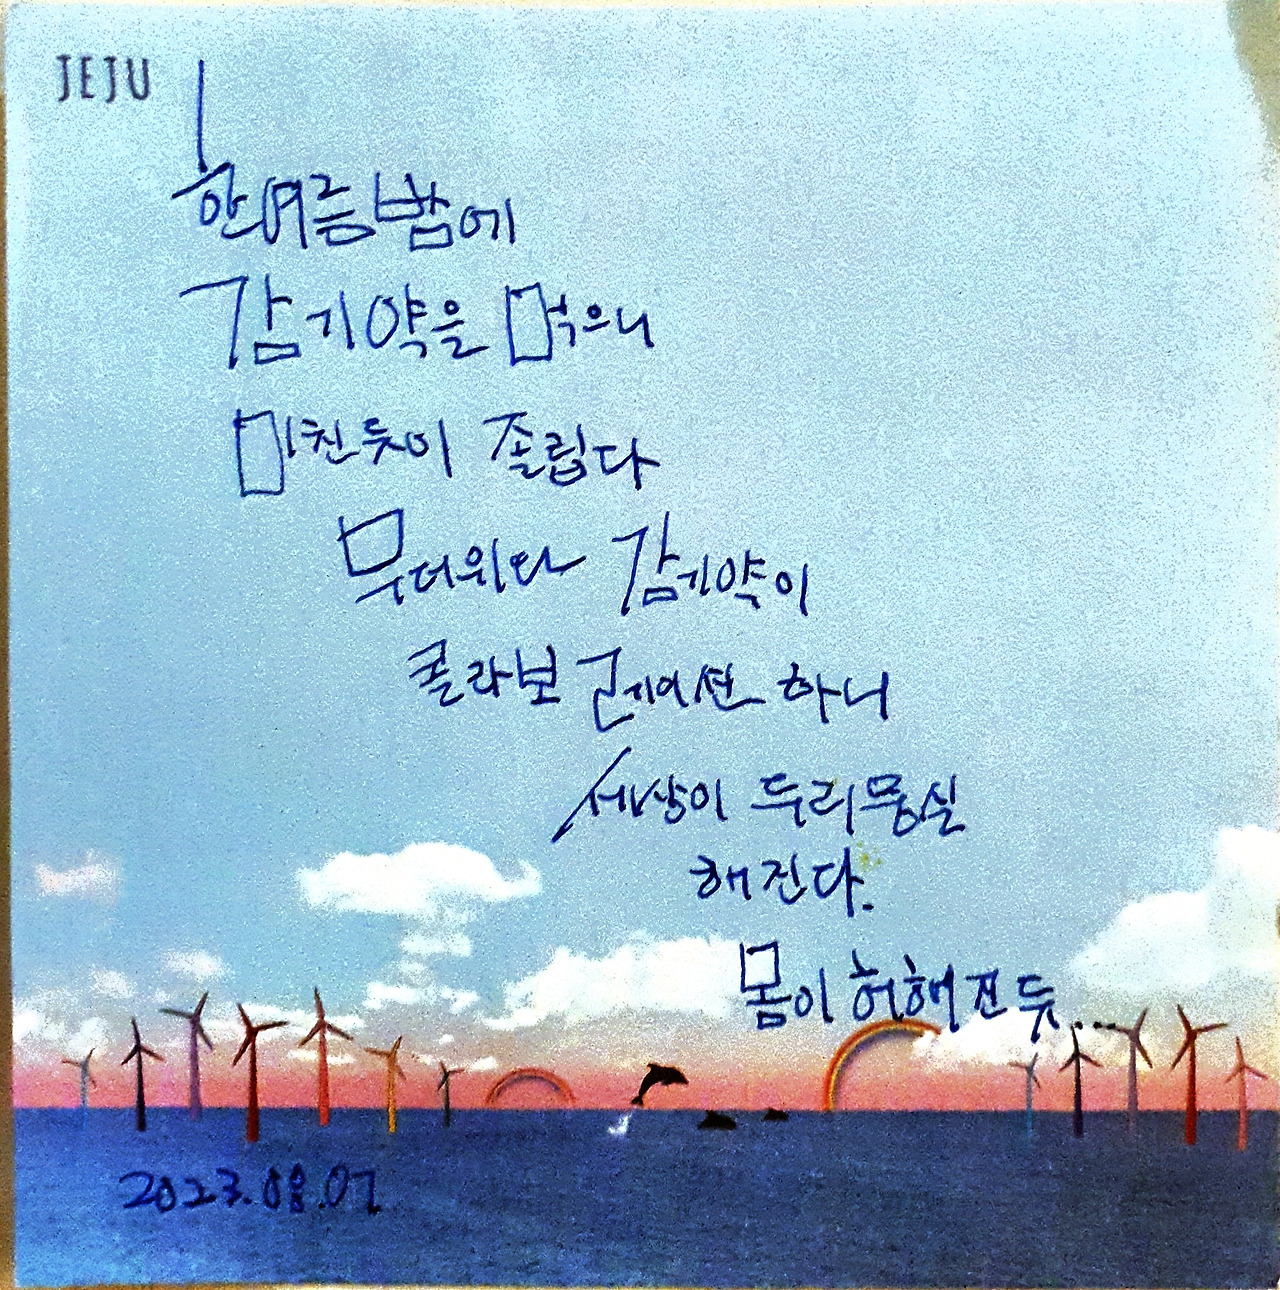 JEJU
한여름밤에
감기약을 먹으니
미친듯이 졸립다
무더위와 감기약이
콜라보 하니
세상이 두리뭉실
해진다.
몸이 허해진듯...
2023.08.07